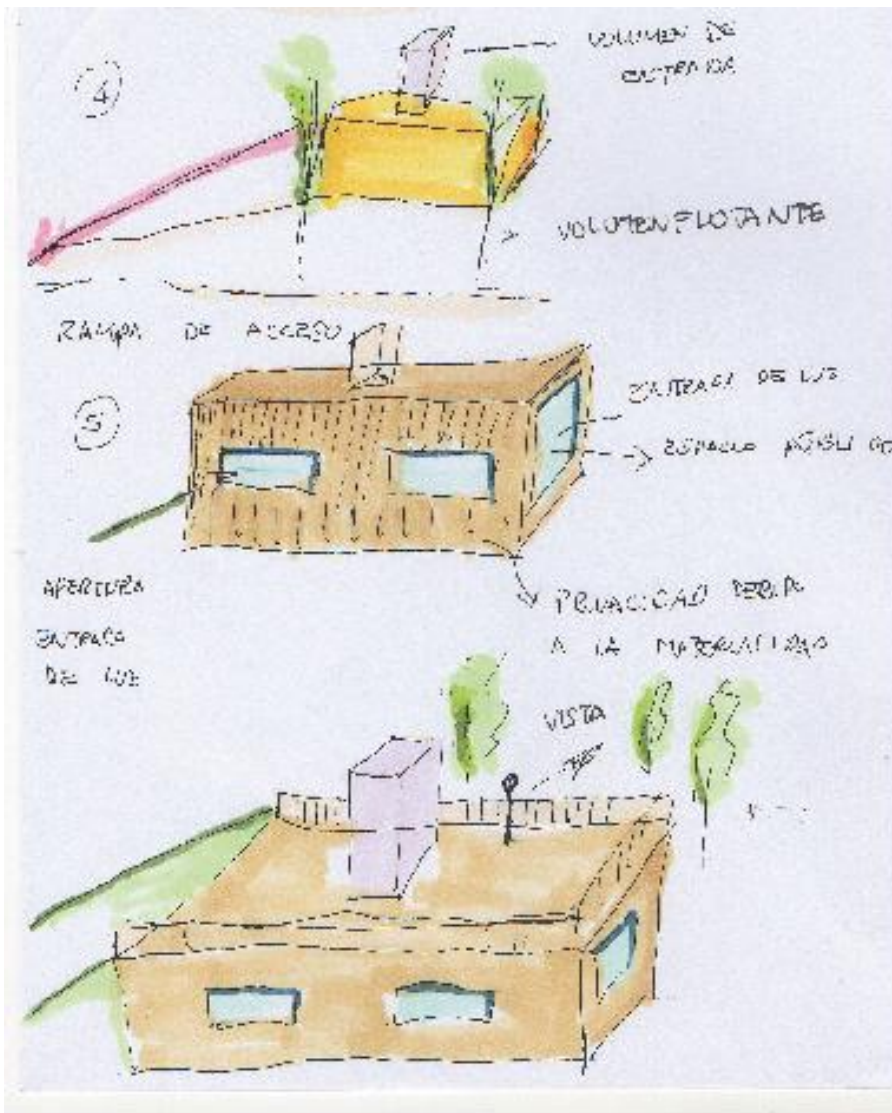 4
VOLUMEN DE
ENTRADA
VOLUMEN FLOTANTE
RAMPA DE ACCESO
5
ENTRADA DE LUZ
ESPACIO PÚBLICO
APERTURA
ENTRADA
DE LUZ
PRIVACIDAD DEBIDA
A LA MATERIALIDAD
VISTA